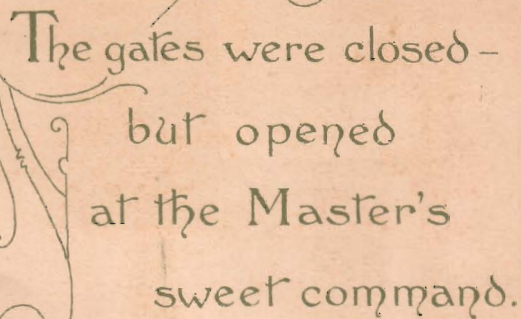 The gates were closed–
but opened
at the Master's
sweet command.